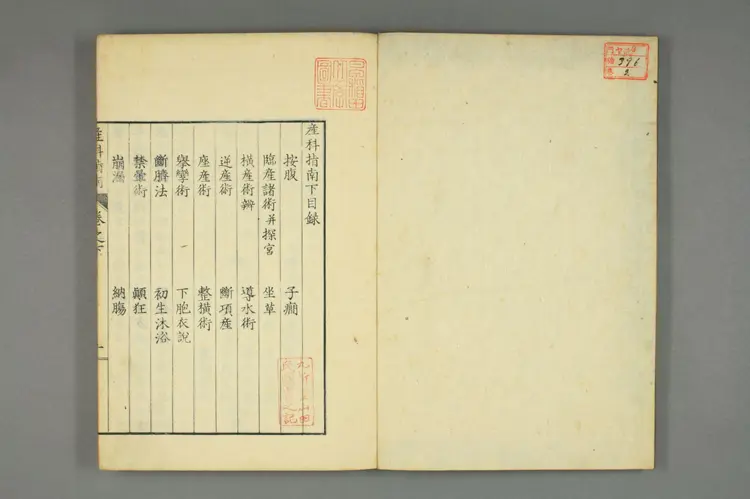 396
2
産科指南下目録
按腹
子癇
臨産諸術并探宮
坐草
横産術辨
導水術
逆産術
斷項産
座産術
整横術
舉攣術
下胞衣說
斷臍法
初生沐浴
禁暈術
顚狂
崩漏
納腸
産科指南
卷之下
一